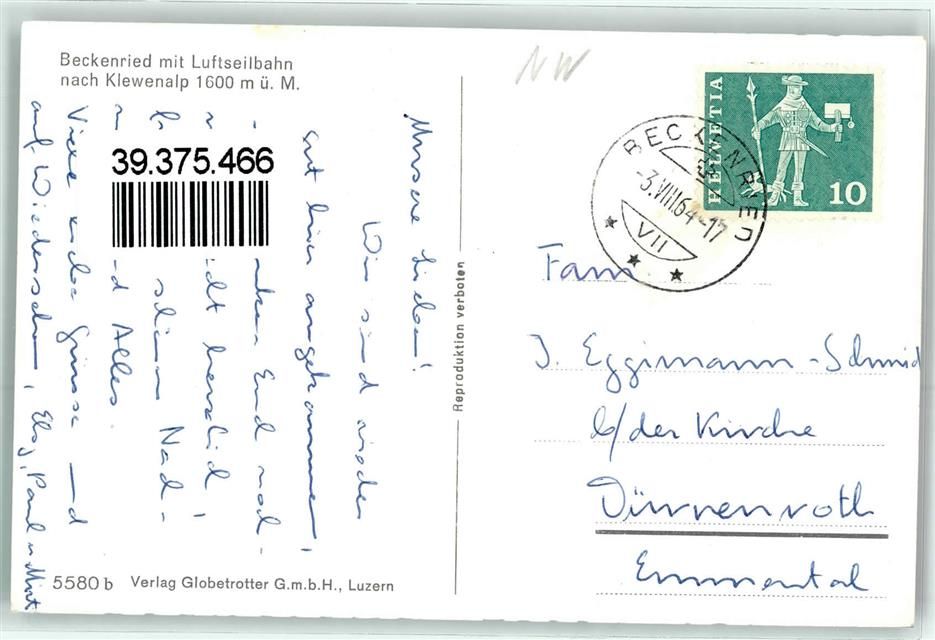 Beckenried mit Luftseilbahn
nach Klewenalp 1600 m ü. M.
NW
HELVETIA
10
BECKENRIED
-3.VIII.64-17
VII
39.375.466
Unsere Lieben!
Wir sind wieder
gut hier angekommen,
und noch-
herzlich
Nach-
Alles.
Viele liebe Grüsse und
auf Wiedersehen, Elsy, Paul u.
Reproduktion verboten
Fam
J. Eggimann-Schmid
b/der Kirche
Dürrenroth
Emmental
5580 b Verlag Globetrotter G.m.b.H., Luzern